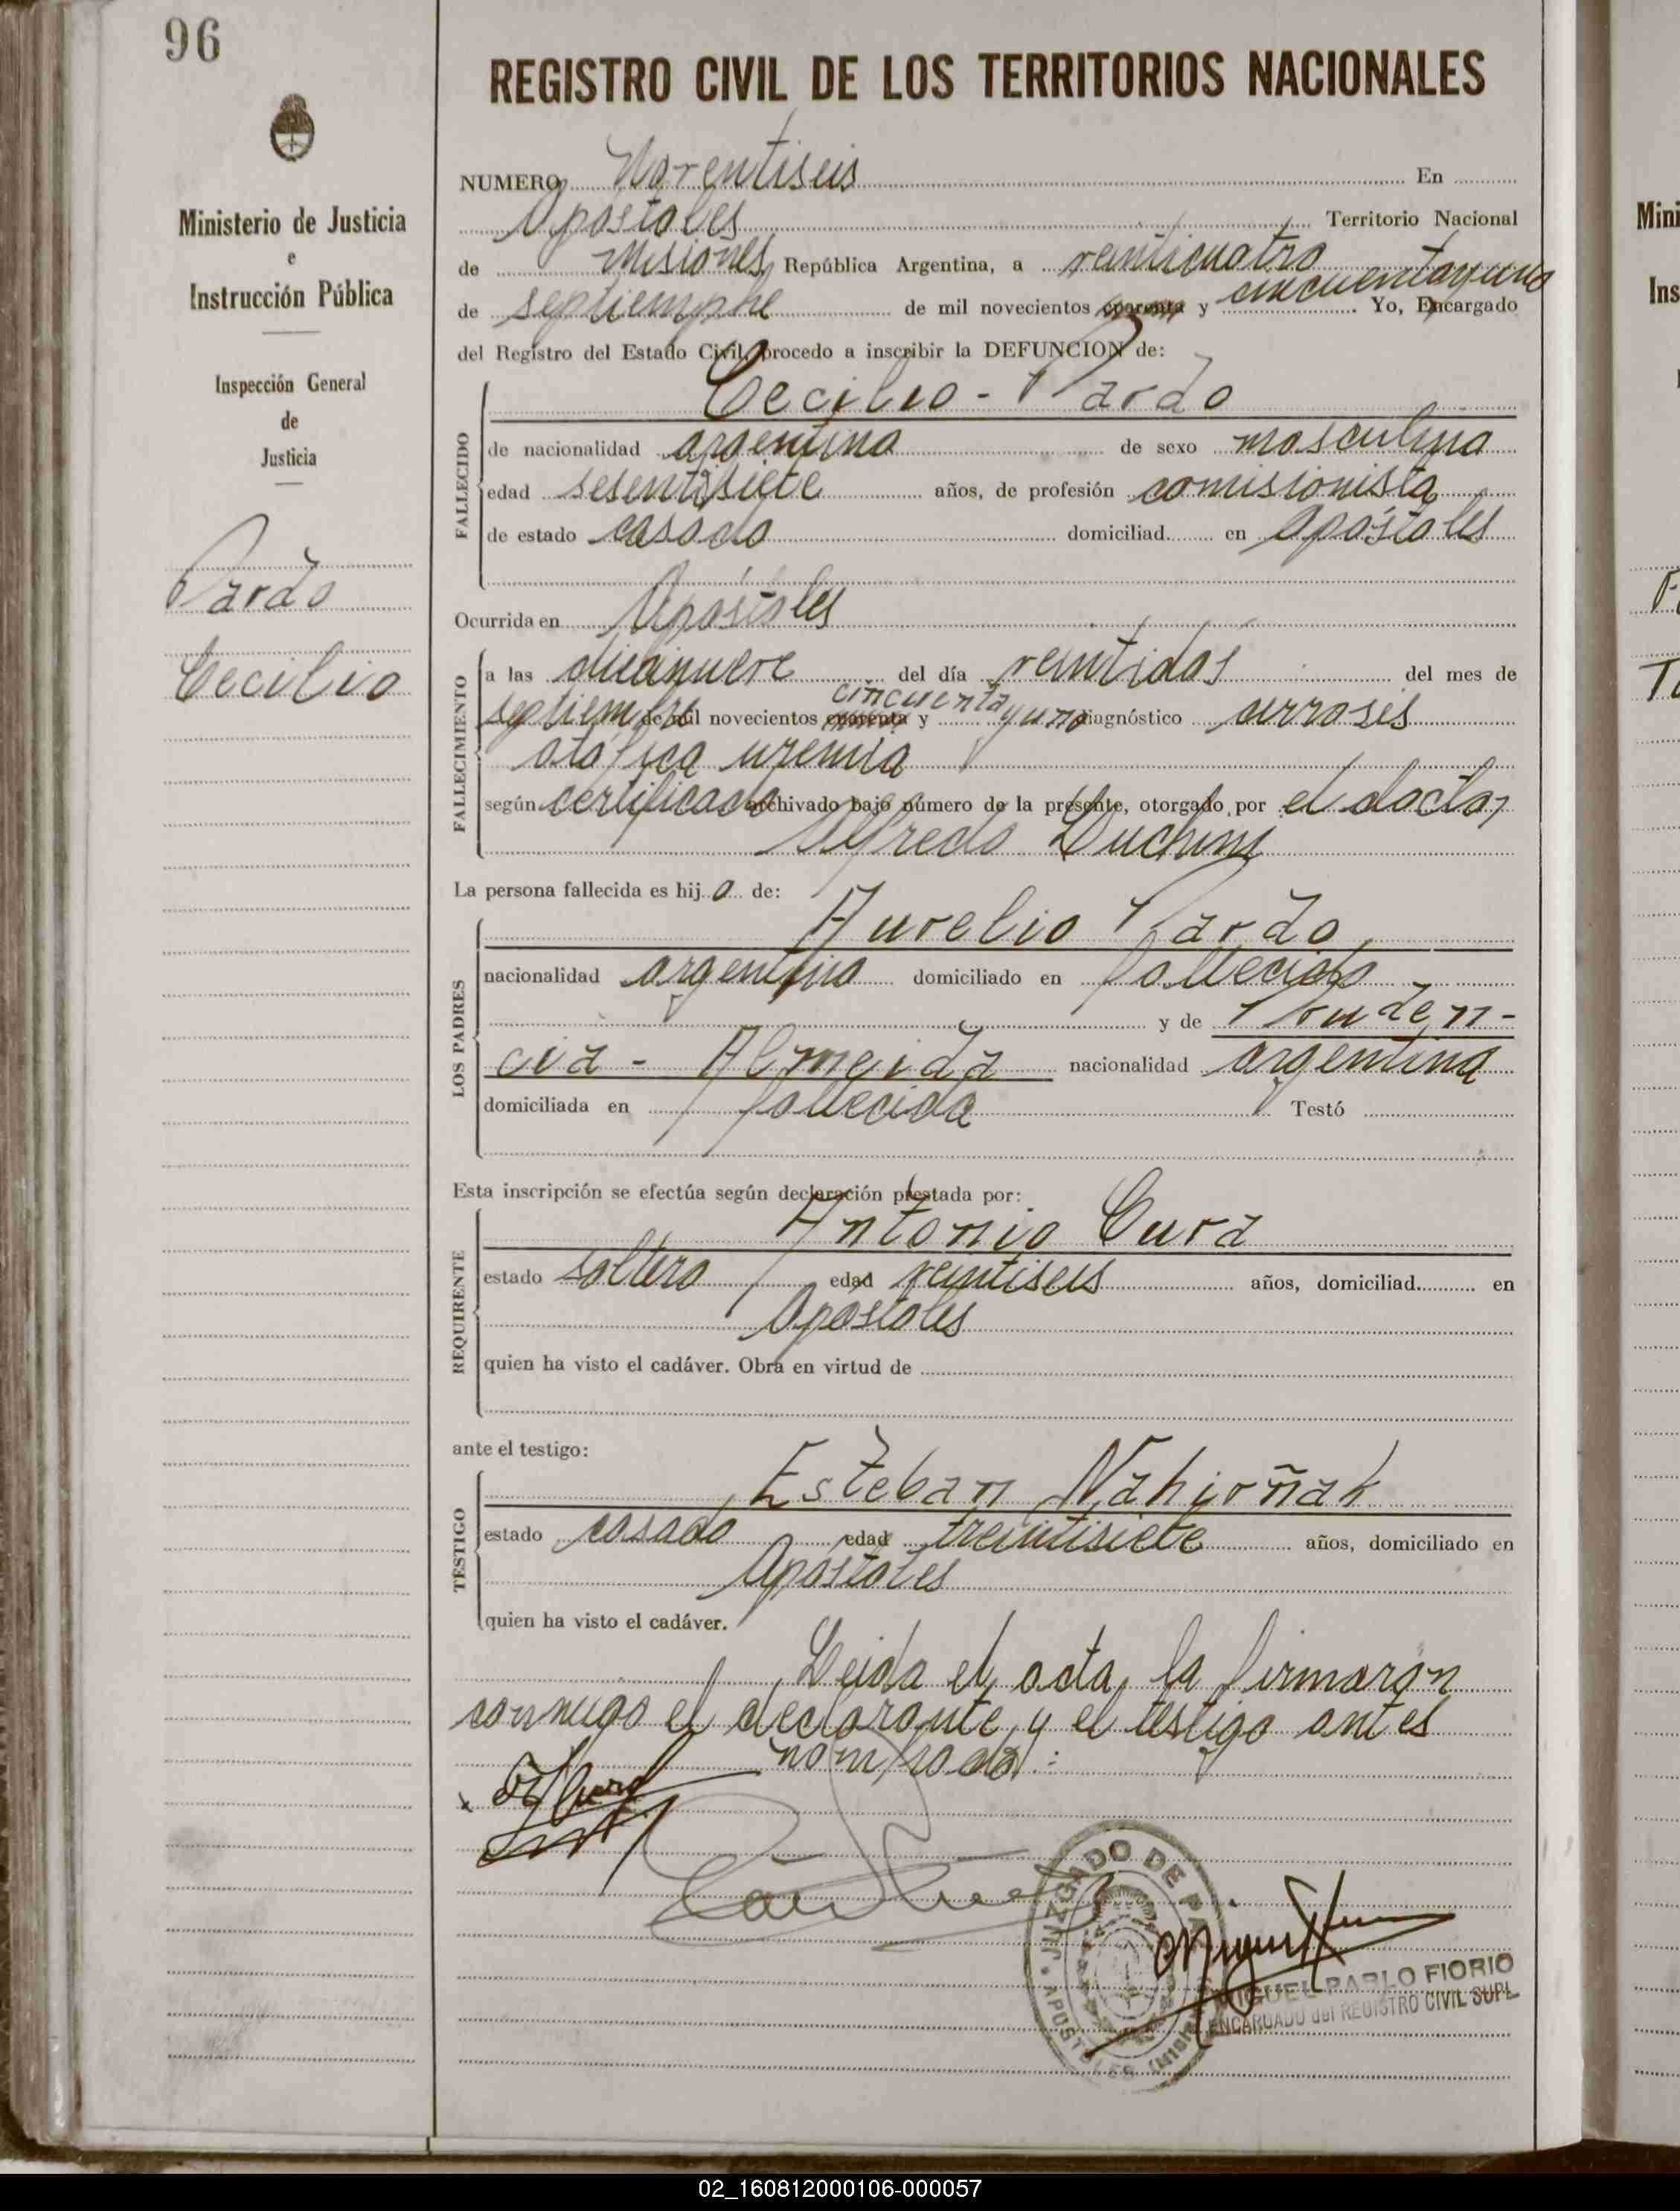 96
REGISTRO CIVIL DE LOS TERRITORIOS NACIONALES
Ministerio de Justicia
e
Instrucción Pública
Inspección General
de
Justicia
Pardo
Cecilio
NUMERO Noventiseis En
Apostoles Territorio Nacional
de Misiones, República Argentina, a veinticuatro
de septiembre de mil novecientos cuarenta y cincuentayuno. Yo, Encargado
del Registro del Estado Civil, procedo a inscribir la DEFUNCION de:
FALLECIDO
Cecilio - Pardo
de nacionalidad argentina de sexo masculino
edad sesentisiete años, de profesión comisionista
de estado casado domiciliad en Apóstoles
Ocurrida en Apóstoles
FALLECIMIENTO
a las diecinueve del día veintidos del mes de
cincuenta
septiembre de mil novecientos cuarenta y yuno diagnóstico cirrosis
uremia
según certificado archivado bajo número de la presente, otorgado por el doctor
Alfredo
La persona fallecida es hijo de:
LOS PADRES
Aurelio Pardo,
nacionalidad argentina domiciliado en fallecido
y de Pruden-
cia - Almeida nacionalidad argentina
domiciliada en fallecida Testó
Esta inscripción se efectúa según declaración prestada por:
REQUIRENTE
Antonio Cura
estado soltero edad veintiseis años, domiciliad en
Apóstoles
quien ha visto el cadáver. Obra en virtud de
ante el testigo:
TESTIGO
Esteban Nahirñak
estado casado edad treintisiete años, domiciliado en
Apóstoles
quien ha visto el cadáver.
Leida el acta, la firmarón
conmigo el declarante y el testigo antes
nombrado:
JUZGADO DE PAZ
APOSTOLES (Misiones)
MIGUEL PABLO FIORIO
ENCARGADO del REGISTRO CIVIL SUPL.
Mini
Ins
02_160812000106-000057